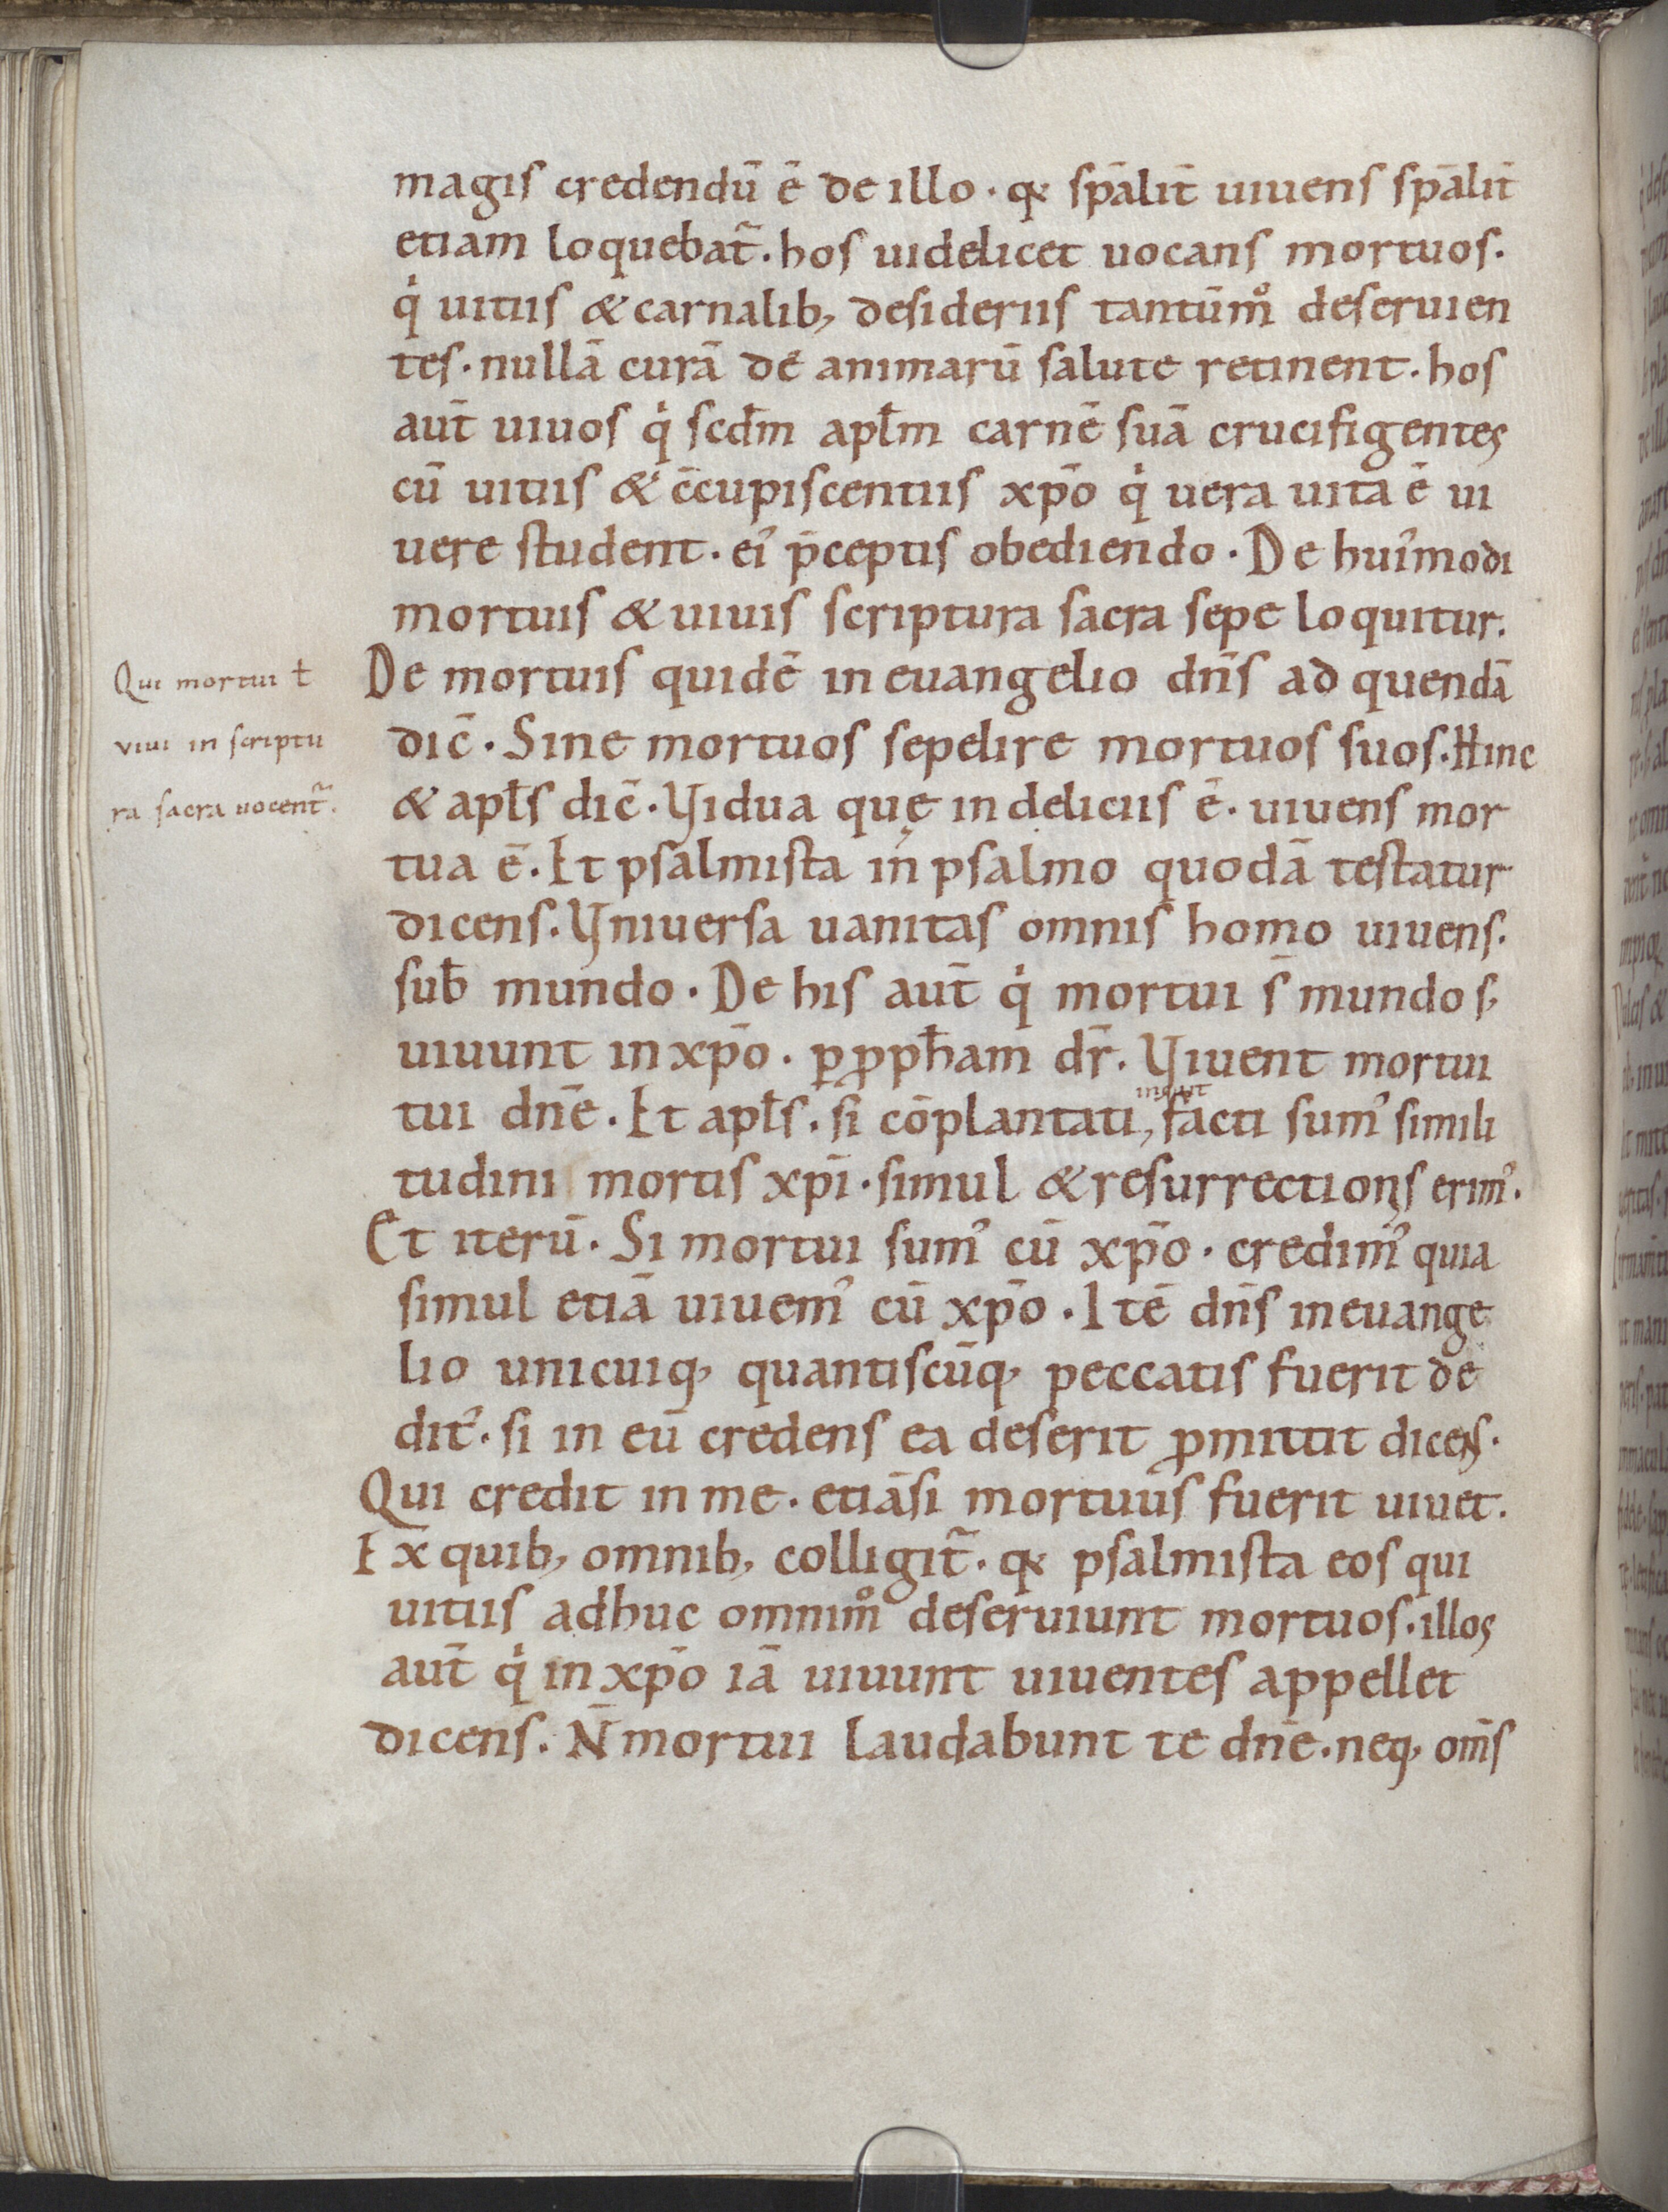 magis credendū ē de illo · qꝛ sp̄alit̄ uiuens sp̄alit̄
etiam loquebat̃ · hos uidelicet uocans mortuos ·
qͥ uitiis & carnalib; desideriis tantūm̊ deseruien
tes · nullā curā de animarū salute retinent · hos
aut̄ uiuos qͥ scd̄m apl̄m carnē suā crucifigentes
cū uitiis & c̄cupiscentiis xp̄o qͥ uera uita ē ui
uere student · ei᾿ p̄ceptis obediendo · De hui᾿modi
mortuis & uiuis scriptura sacra sepe loquitur.
Qui mortui ł
uiui in scriptu
ra sacra uocent̃ ·
De mortuis quidē in euangelio dn̄s ad quendā
dic̄ · Sine mortuos sepelire mortuos suos · Hinc
& apl̄s dic̄ · Vidua quę in deliciis ē · uiuens mor
tua ē · Et psalmista in psalmo quodā testatur
dicens · Vniuersa uanitas omnis homo uiuens ·
sub̄ mundo · De his aut̄ qͥ mortui s̄ mundo s;
uiuunt in xp̄o · ꝑ ꝓpħam dr̄ · Viuent mortui
tui dn̄e · Et apl̄s · si cōplantati, facti sum᾿ simili
tudini mortis xp̄i · simul & resurrectionis erim᾿ ·
Et iterū · Si mortui sum᾿ cū xp̄o · credim᾿ quia
simul etiā uiuem᾿ cū xp̄o · Itē dn̄s in euange
lio unicuiq; quantiscūq; peccatis fuerit de
dit᾿ · si in eū credens ea deserit ꝓmittit dicens ·
Qui credit in me · etiāsi mortuus fuerit uiuet ·
Ex quib; omnib; colligit̃ · qꝛ psalmista eos qui
uitiis adhuc omnim̊ deseruiunt mortuos · illos
aut̄ qͥ in xp̄o iā uiuunt uiuentes appellet
dicens · N̄ mortui laudabunt te dn̄e · neq; om̄s